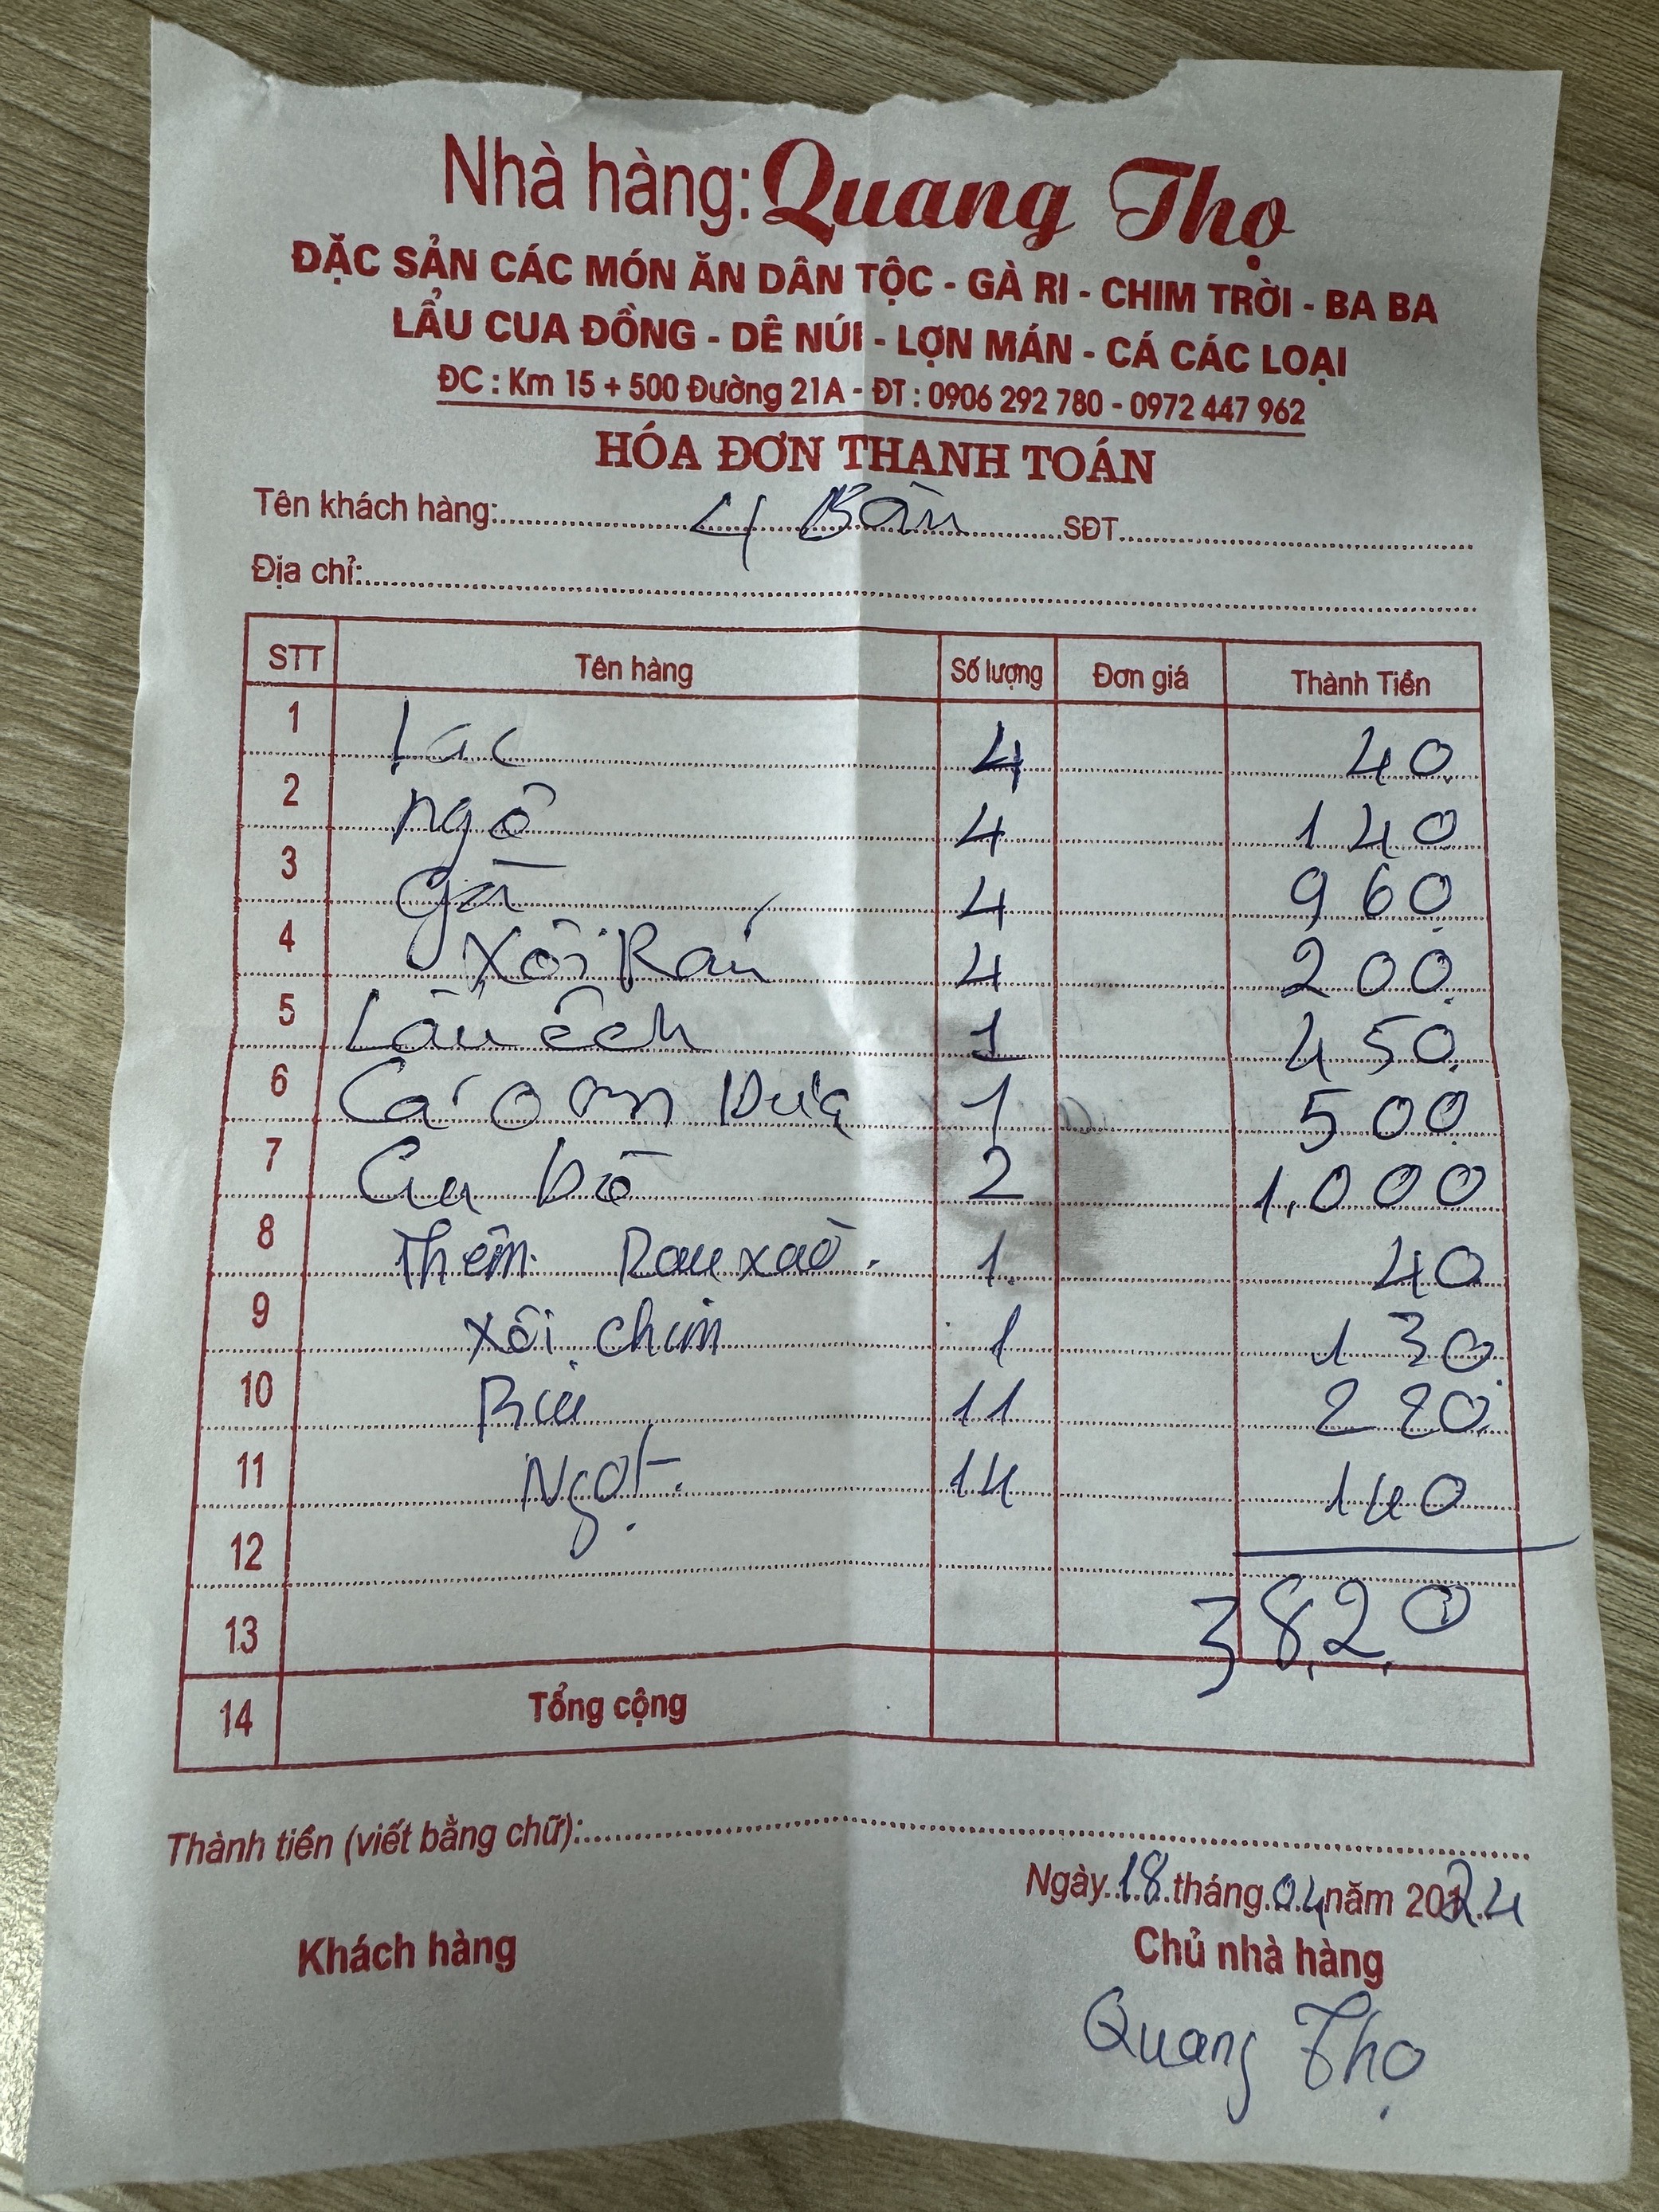 Nhà hàng: Quang Thọ
ĐẶC SẢN CÁC MÓN ĂN DÂN TỘC - GÀ RI - CHIM TRỜI - BA BA
LẨU CUA ĐỒNG - DÊ NÚI - LỢN MÁN - CÁ CÁC LOẠI
ĐC : Km 15 + 500 Đường 21A - ĐT : 0906 292 780 - 0972 447 962
HÓA ĐƠN THANH TOÁN
Tên khách hàng: 4 Bàn SĐT
Địa chỉ:
STT Tên hàng Số lượng Đơn giá Thành Tiền
1 Lạc 4 40
2 ngô 4 140
3 gà 4 960
4 Xôi Rán 4 200
5 Lẩu ếch 1 450
6 Cá om Dưa 1 500
7 2 1,000
8 Thêm Rau xào 1 40
9 xôi chim 1 130
10 Bia 11 220
11 Ngọt 14 140
12
13 3820
14 Tổng cộng
Thành tiền (viết bằng chữ):
Ngày 18 tháng 04 năm 2024
Khách hàng Chủ nhà hàng
Quang Thọ